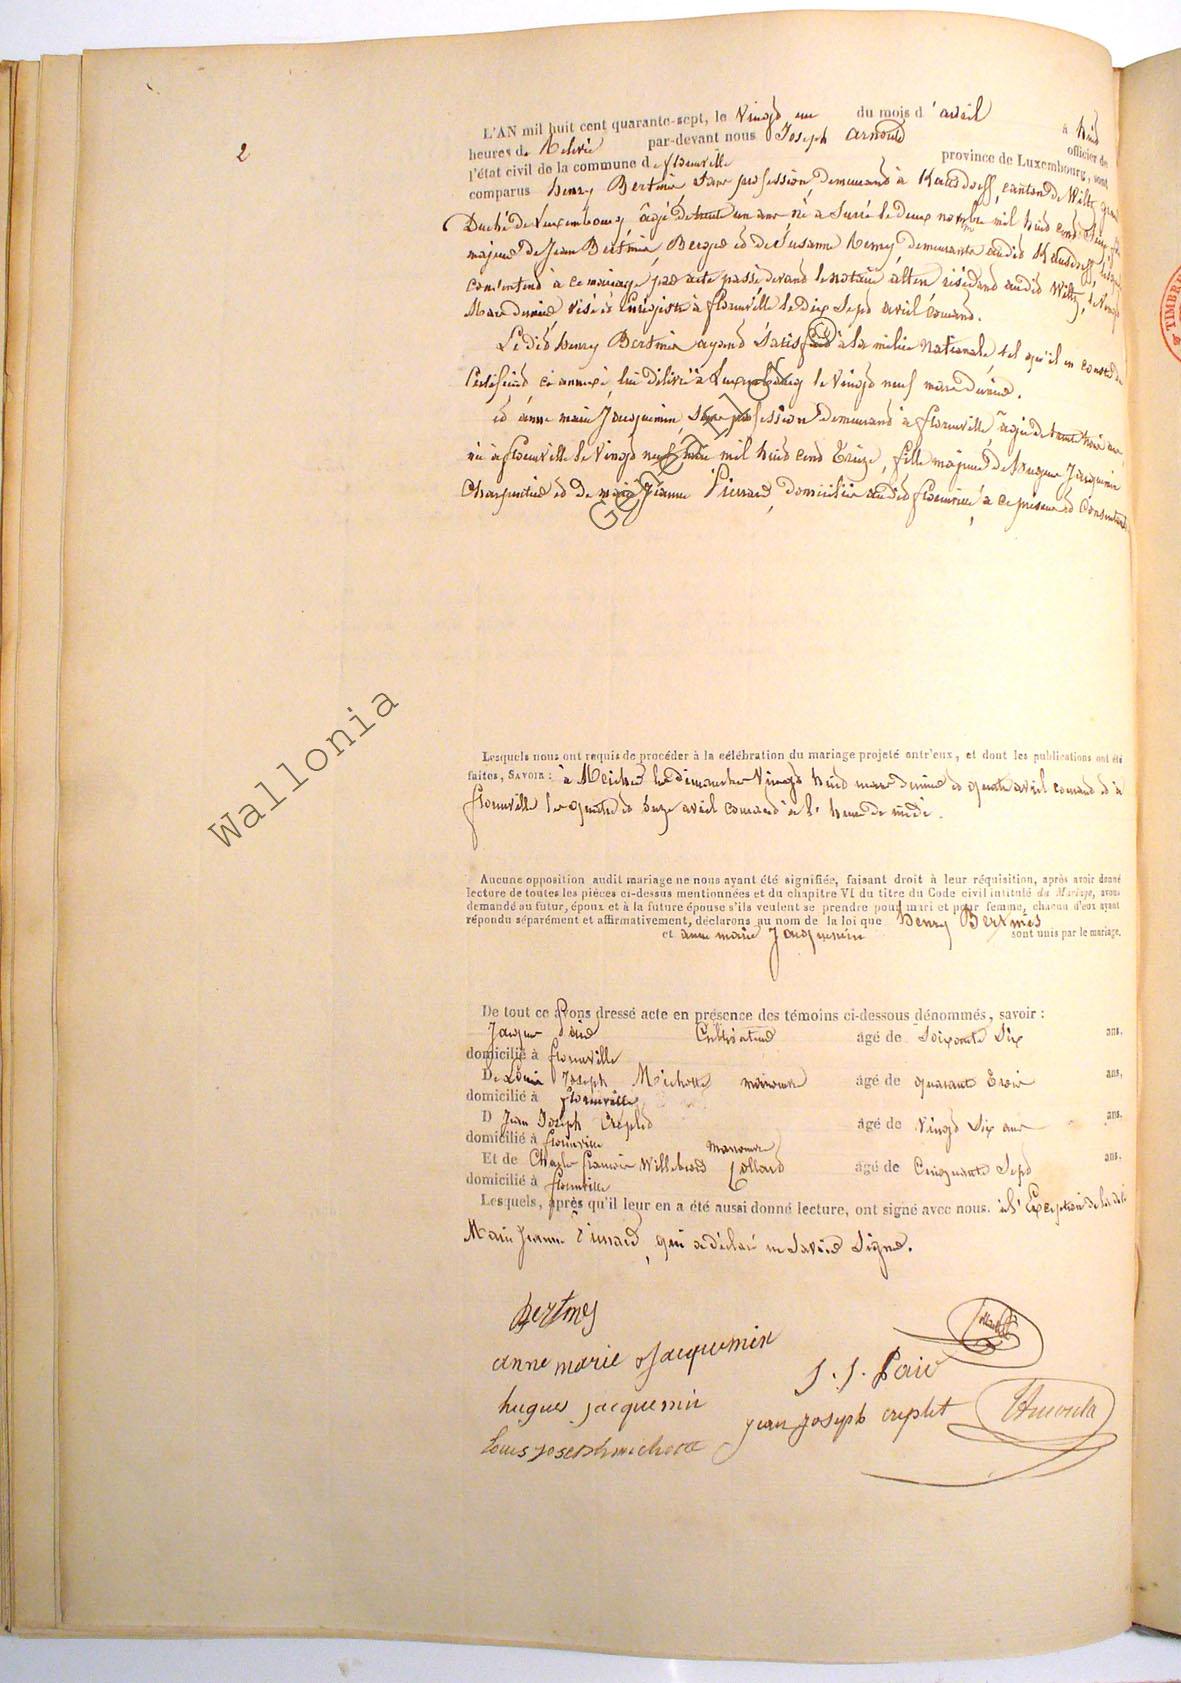 2
L'AN mil huit cent quarante-sept, le vingt un du mois d'avril à huit
heures de relevée par-devant nous Joseph Arnould officier de
l'état civil de la commune de florenville province de Luxembourg, sont
comparus henry Bertmès sans profession demeurant à Kautsdorff, canton de Wiltz, grand
Duché de Luxembourg, âgé de trente un ans né à Surré le deux novembre mil huit cent quinze, fils
majeur de Jean Bertmès Berger et de Susanne Remy demeurants audit Kautsdorff,
consentend à ce mariage par acte passé devant le notaire alten résidend audit Wiltz, le vingt
Mars dernier visé et Enrégistré à florenville le dix Sept avril courand.
Ledit henry Bertmès ayand Satisfait à la milice Nationale tel qu'il en conste du
Certificat ci annexé lui délivré à Luxembourg le vingt neuf mars dernier.
et anne marie Jacquemin, Sans profession demeurand à florenville, âgée de trente trois ans,
née à florenville le vingt neuf mai mil huit cent Treize, fille majeure de hugues Jacquemin
Charpentier et de marie Jeanne Pierrard, domiciliés audit florenville, à ce présent et Consentants
Lesquels nous ont requis de procéder à la célébration du mariage projeté entr'eux, et dont les publications ont été
faites, SAVOIR: à les dimanches Vingt huit mars dernier et quatre avril courand et à
florenville les quatre et onze avril courand à l'heure de midi.
Aucune opposition audit mariage ne nous ayant été signifiée, faisant droit à leur réquisition, après avoir donné
lecture de toutes les pièces ci-dessus mentionnées et du chapitre VI du titre du Code civil intitulé du Mariage, avons
demandé au futur, époux et à la future épouse s'ils veulent se prendre pour mari et pour femme, chacun d'eux ayant
répondu séparément et affirmativement, déclarons au nom de la loi que henry Bertmès
et anne marie Jacquemin sont unis par le mariage.
De tout ce avons dressé acte en présence des témoins ci-dessous dénommés, savoir:
Jacques Paie Cultivateur âgé de Soixante Six ans,
domicilié à florenville
De Louis Joseph Michotte manoeuvre âgé de quarante Trois ans,
domicilié à florenville
D Jean Joseph Creplet manoeuvre âgé de Vingt Six ans ans,
domicilié à florenville
Et de Charles francois Willebrord Collard âgé de Cinquante Sept ans,
domicilié à florenville
Lesquels, après qu'il leur en a été aussi donné lecture, ont signé avec nous. à l'Exception de la dite
Marie Jeanne Pierrard, qui a déclaré ne Savoir Signer.
Bertmes
anne marie Jacquemin
hugues jacquemin
Louis joseph michotte
J. J. Paie
jean joseph creplet
Collard
J Arnould
TIMBRE
Wallonia
Genealo ©